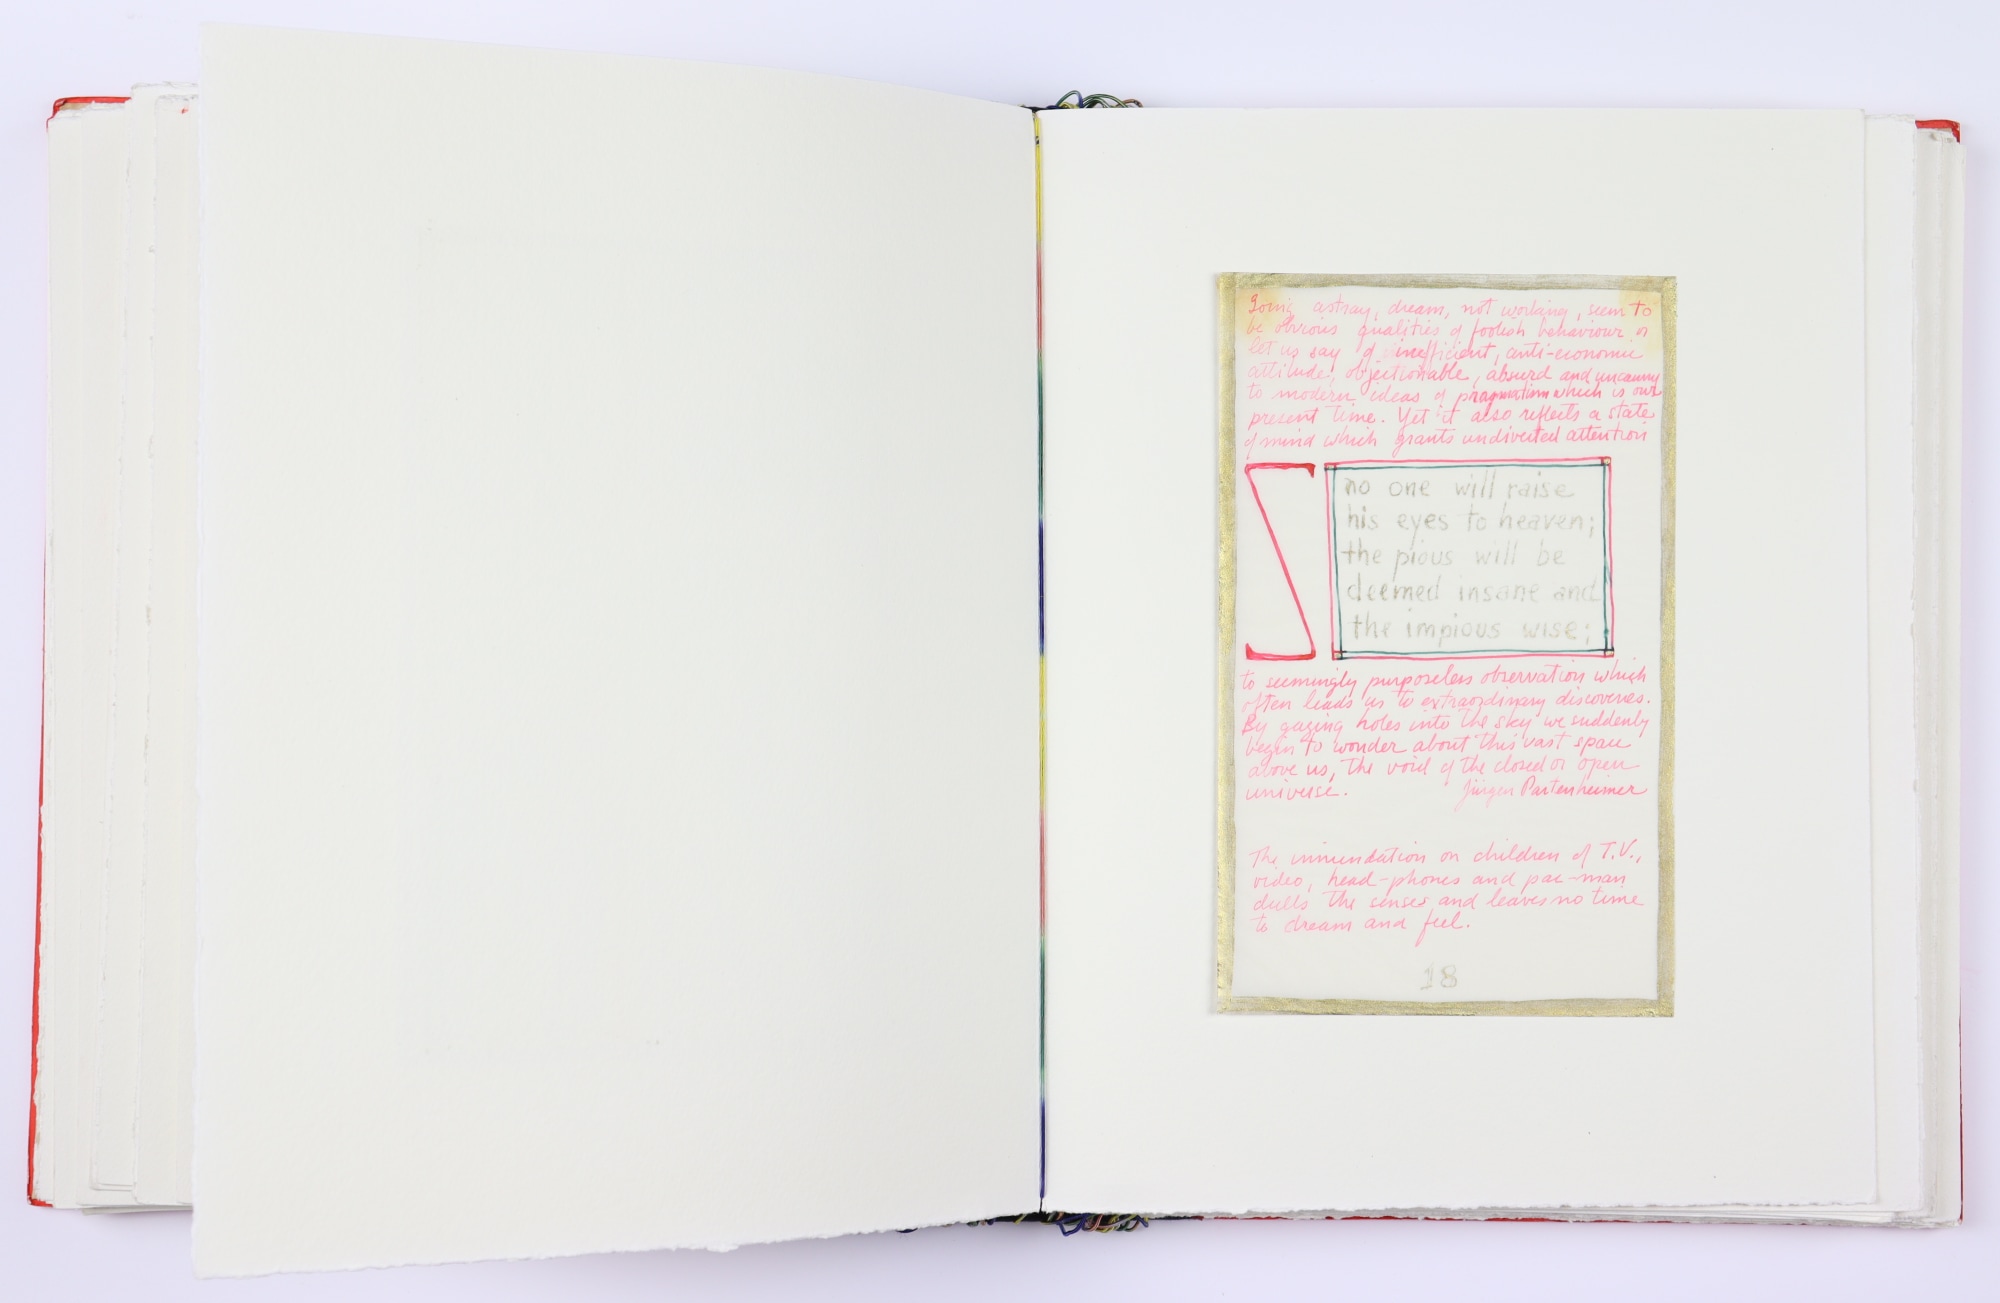 Going astray, dream, not working, seem to
be obvious qualities of foolish behaviour or
let us say of inefficient, anti-economic
attitude, objectionable, absurd and uncanny
to modern ideas of pragmatism which is our
present time. Yet it also reflects a state
of mind which grants undiverted attention
no one will raise
his eyes to heaven;
the pious will be
deemed insane and
the impious wise;
to seemingly purposeless observation which
often leads us to extraordinary discoveries.
By gazing holes into the sky we suddenly
begin to wonder about this vast space
above us, the void of the closed or open
universe. Jürgen Partenheimer
The innundation on children of T.V.,
video, head-phones and pac-man
dulls the senses and leaves no time
to dream and feel.
18